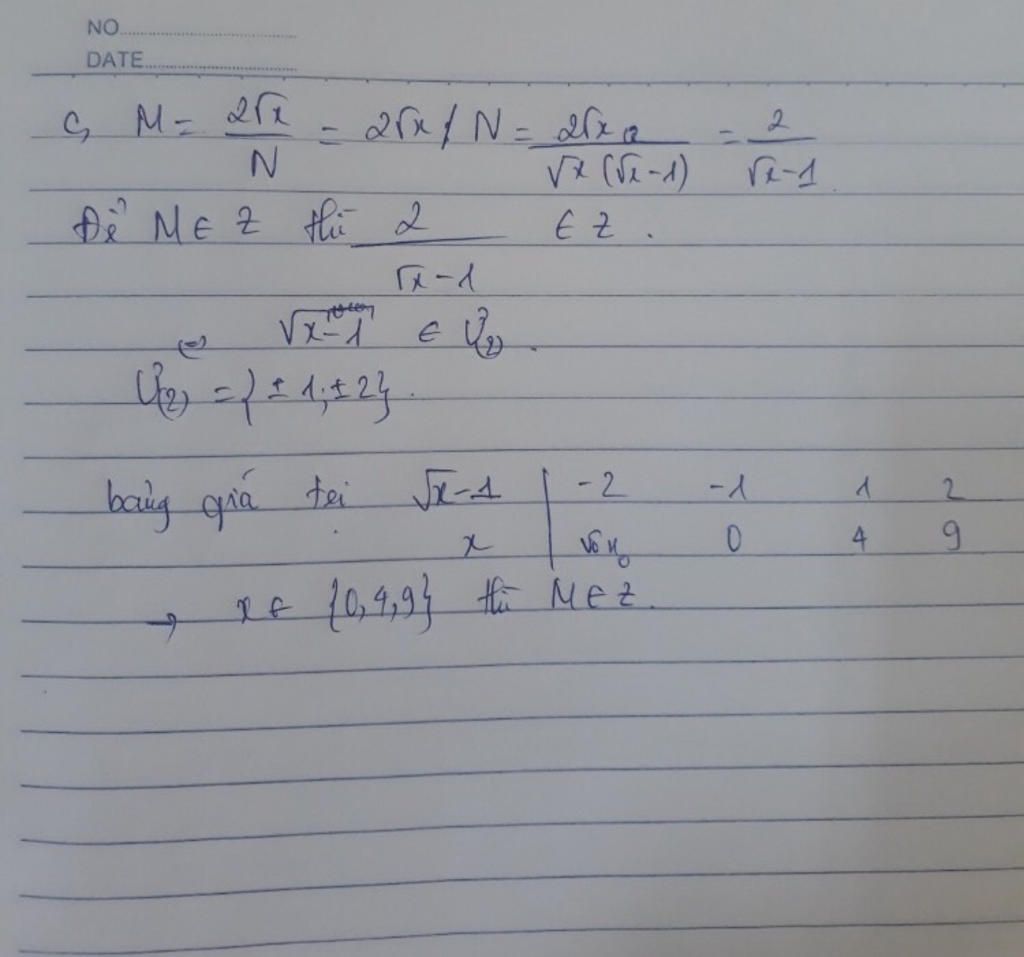 NO
DATE
c, M = 2√x / N = 2√x / N = 2√x / √x (√x - 1) = 2 / √x - 1
Để M ∈ Z thì 2 / √x - 1 ∈ Z.
⇔ √x - 1 ∈ Ư(2).
Ư(2) = {± 1; ± 2}.
bảng giá trị √x - 1 | -2 -1 1 2
x | vô n0 0 4 9
→ x ∈ {0, 4, 9} thì M ∈ Z.